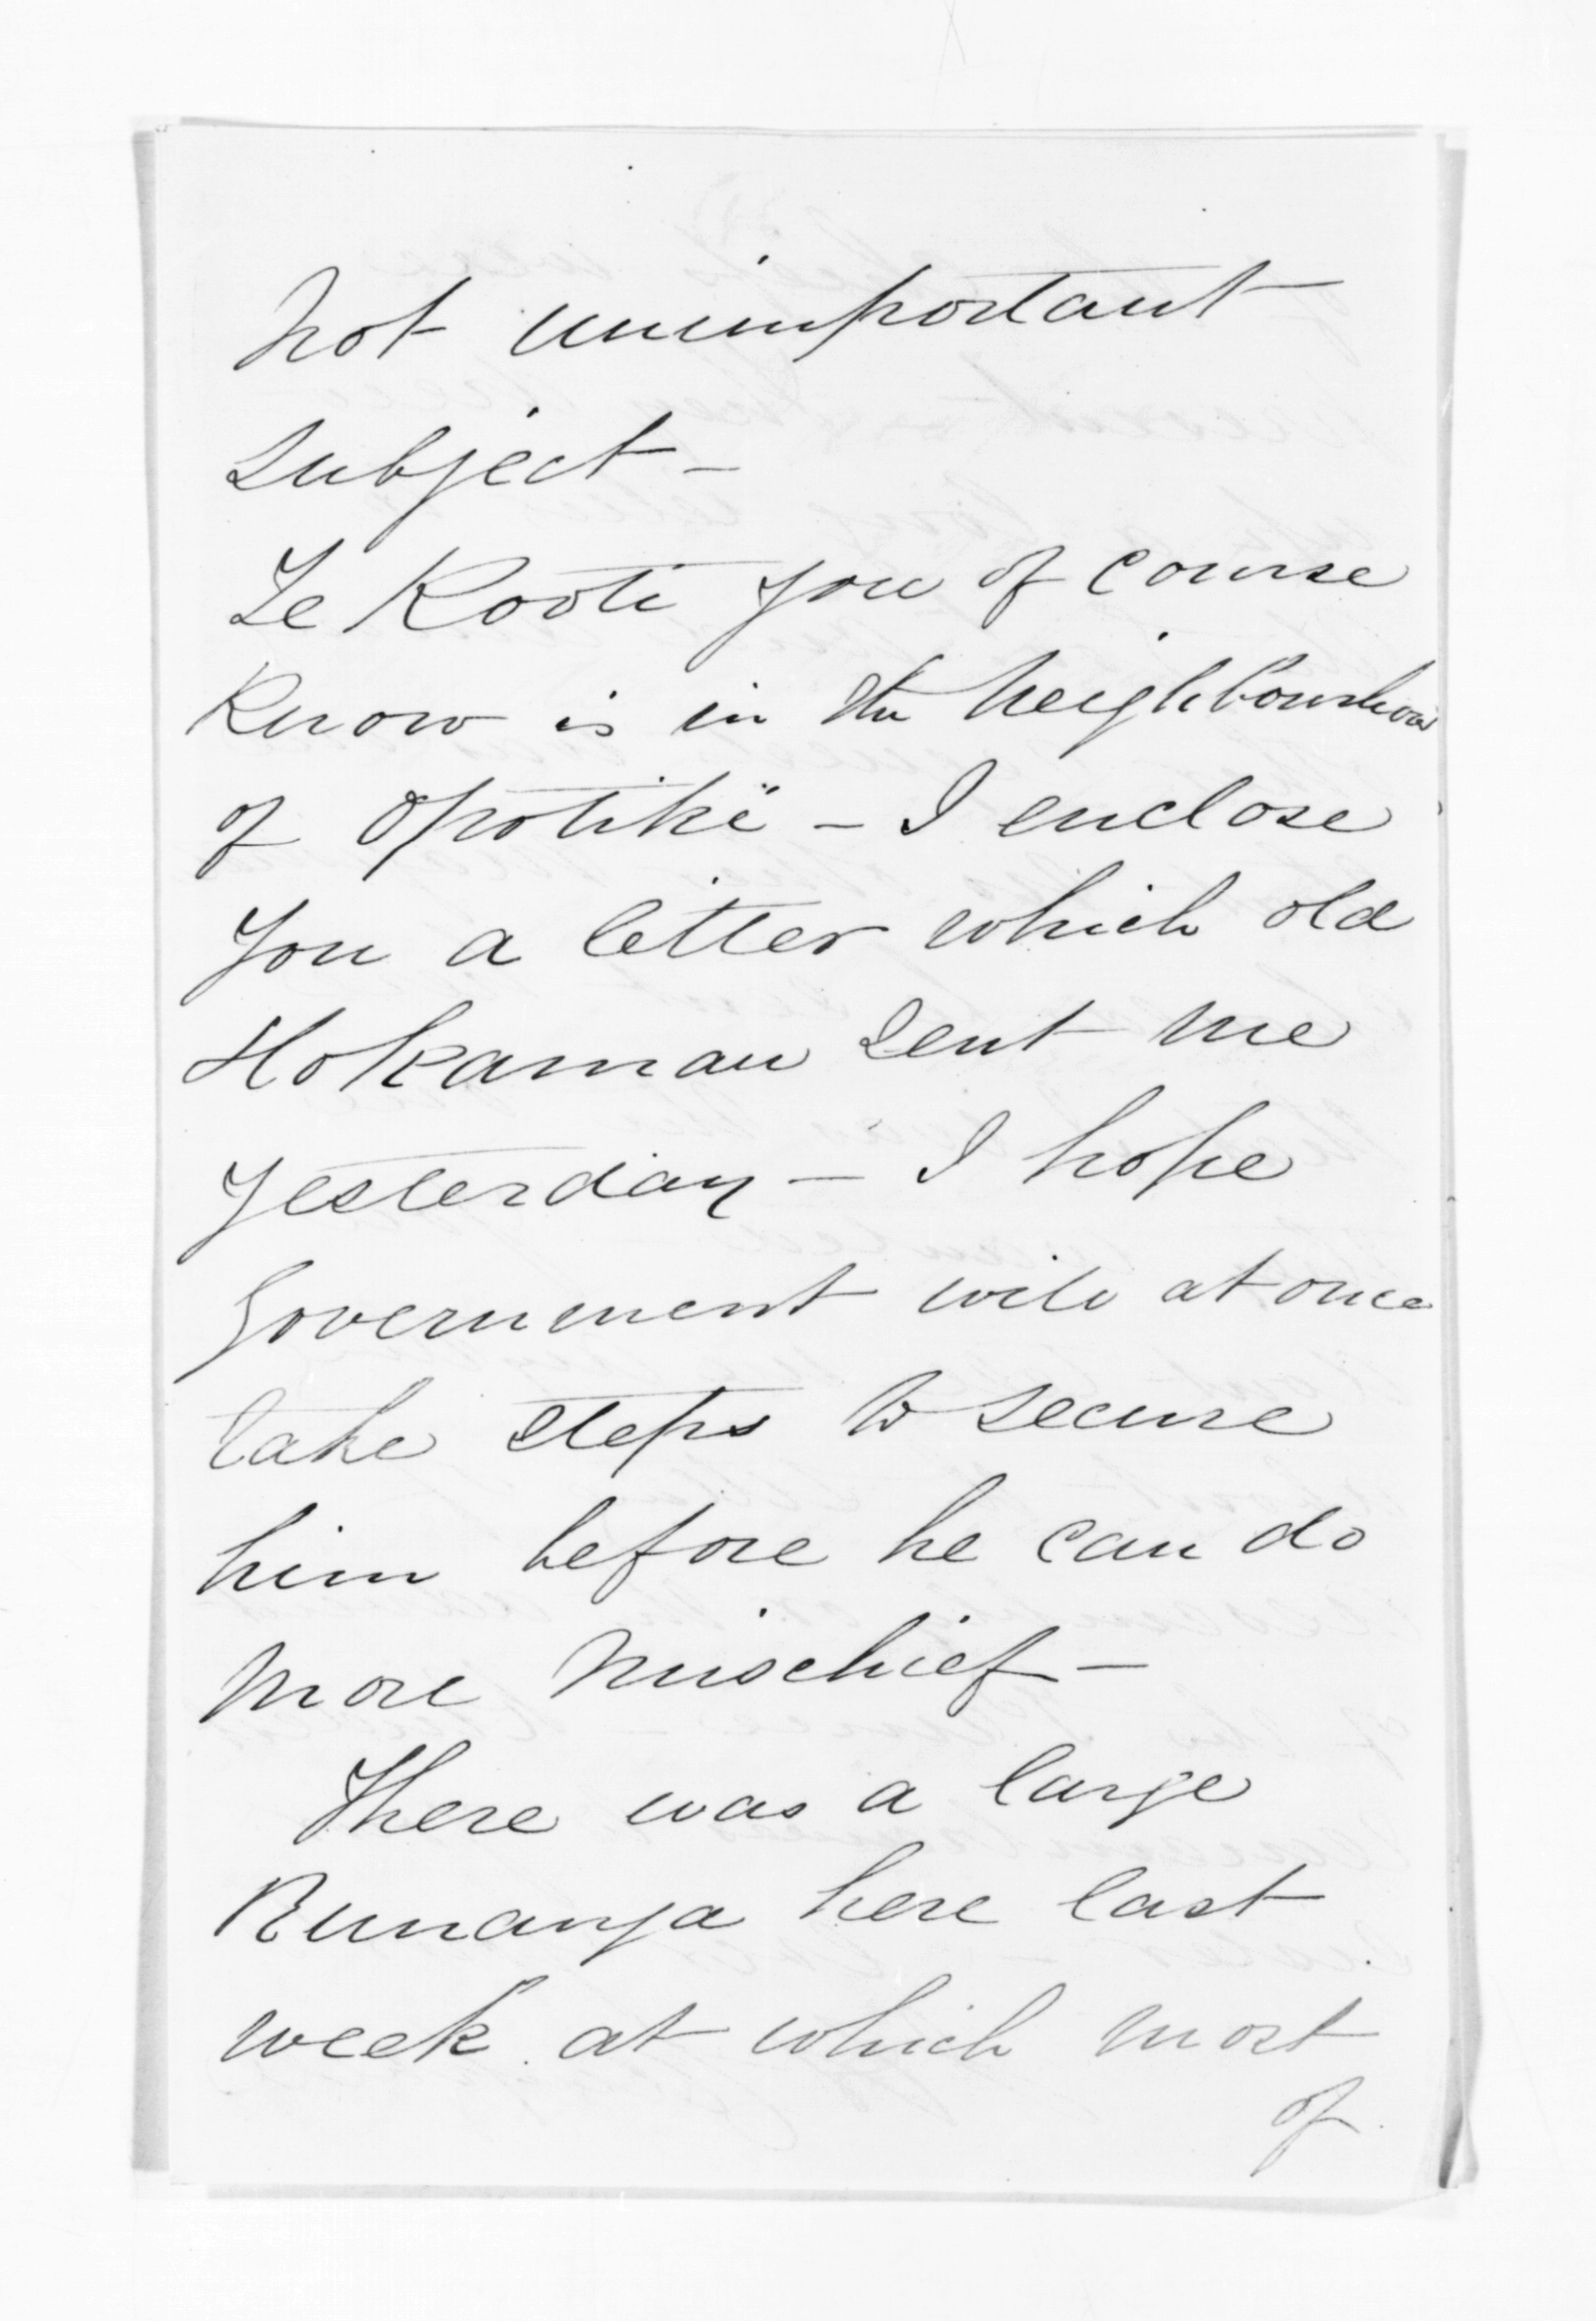 not unimportant
subject -
Te Kooti you of course
know is in the neighbourhood
of Opotiki - I enclose
you a letter which old
Hokamau sent me
yesterday - I hope
Government will at once
take steps to secure
him before he can do
more mischief -
There was a large
Runanga here last
week at which most
of